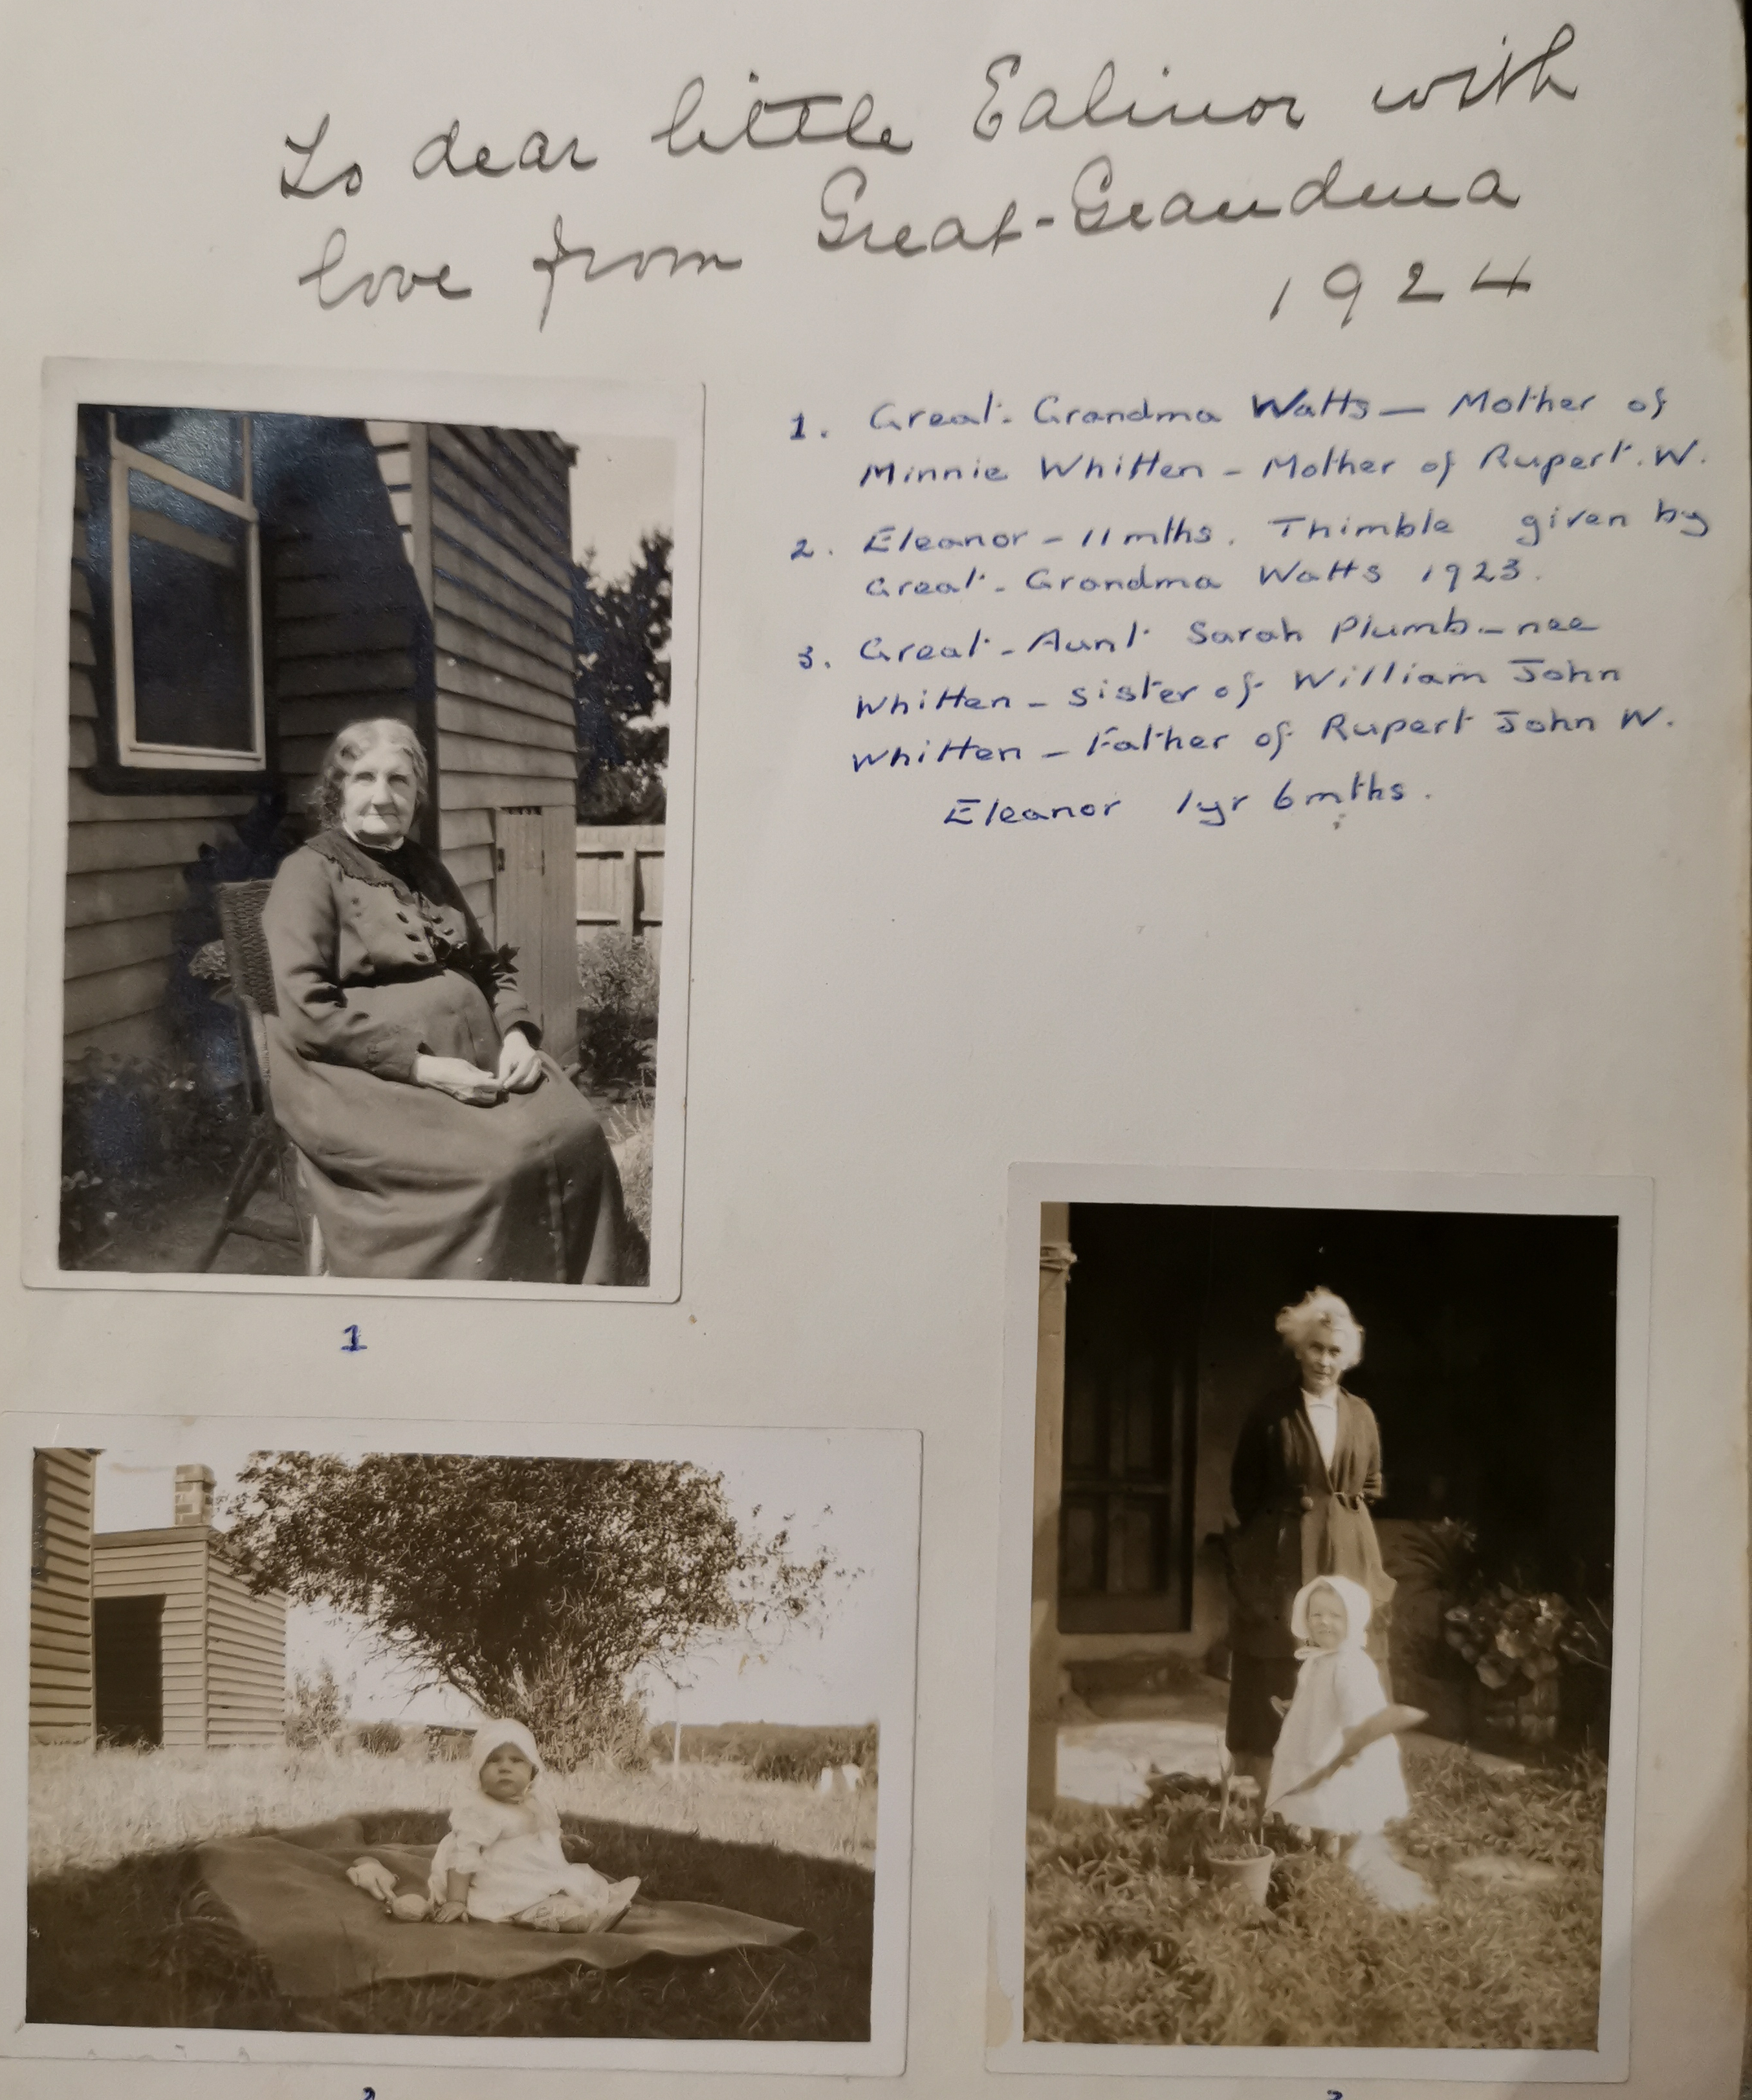 To dear little Ealinor with
love from Great-Grandma
1924
1. Great-Grandma Watts — Mother of
Minnie Whitten - Mother of Rupert. W.
2. Eleanor - 11 mths. Thimble given by
Great-Grandma Watts 1923.
3. Great-Aunt Sarah Plumb - nee
Whitten - sister of William John
Whitten - Father of Rupert John W.
Eleanor 1yr 6mths.
1
2